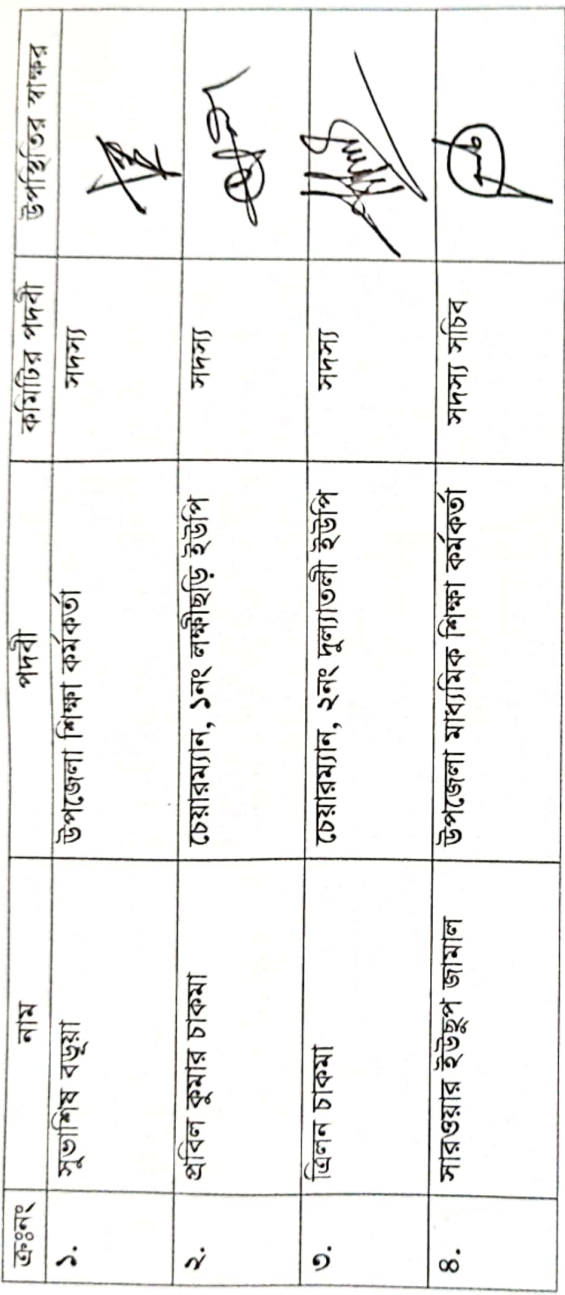 ক্রঃনং নাম পদবী কমিটির পদবী উপস্থিতির স্বাক্ষর
১. সুভাশিষ বড়ুয়া উপজেলা শিক্ষা কর্মকর্তা সদস্য
২. প্রবিল কুমার চাকমা চেয়ারম্যান, ১নং লক্ষীছড়ি ইউপি সদস্য
৩. ত্রিলন চাকমা চেয়ারম্যান, ২নং দুল্যাতলী ইউপি সদস্য
৪. সারওয়ার ইউছুপ জামাল উপজেলা মাধ্যমিক শিক্ষা কর্মকর্তা সদস্য সচিব